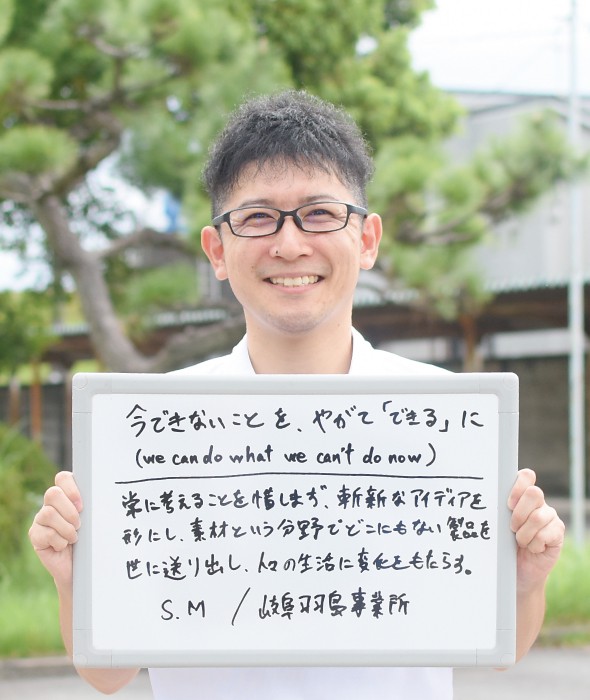 今できないことを、やがて「できる」に
(we can do what we can't do now)
常に考えることを惜しまず、斬新なアイディアを
形にし、素材という分野でどこにもない製品を
世に送り出し、人々の生活に変化をもたらす。
S.M / 岐阜羽島事業所